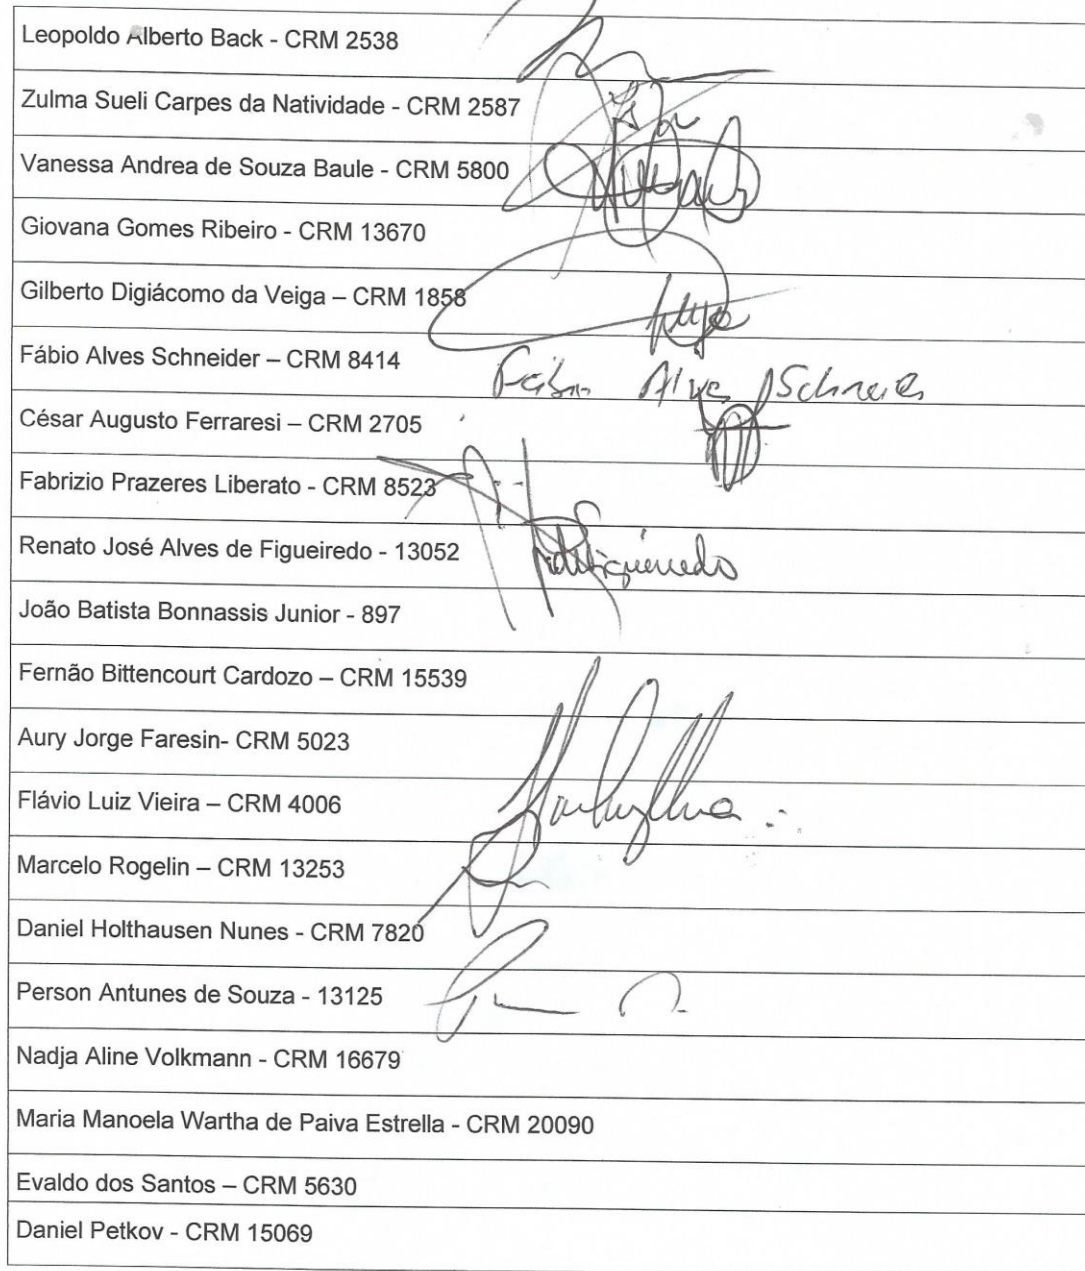 Leopoldo Alberto Back - CRM 2538
Zulma Sueli Carpes da Natividade - CRM 2587
Vanessa Andrea de Souza Baule - CRM 5800
Giovana Gomes Ribeiro - CRM 13670
Gilberto Digiácomo da Veiga – CRM 1858
Fábio Alves Schneider – CRM 8414
Fábio Alves Schneider
César Augusto Ferraresi – CRM 2705
Fabrizio Prazeres Liberato - CRM 8523
Renato José Alves de Figueiredo - 13052
João Batista Bonnassis Junior - 897
Fernão Bittencourt Cardozo – CRM 15539
Aury Jorge Faresin- CRM 5023
Flávio Luiz Vieira – CRM 4006
Marcelo Rogelin – CRM 13253
Daniel Holthausen Nunes - CRM 7820
Person Antunes de Souza - 13125
Nadja Aline Volkmann - CRM 16679
Maria Manoela Wartha de Paiva Estrella - CRM 20090
Evaldo dos Santos – CRM 5630
Daniel Petkov - CRM 15069